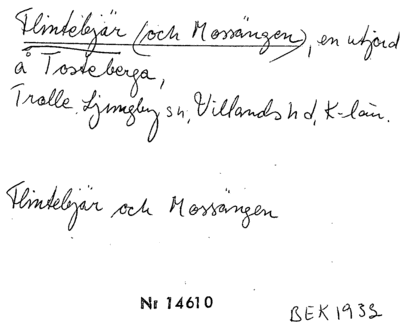 Flintebjär (och Mossängen), en utjord
å Tosteberga,
Trolle Ljungby sn, Villands hd, K-län.
Flintebjär och Mossängen
Nr 14610
BEK 1932